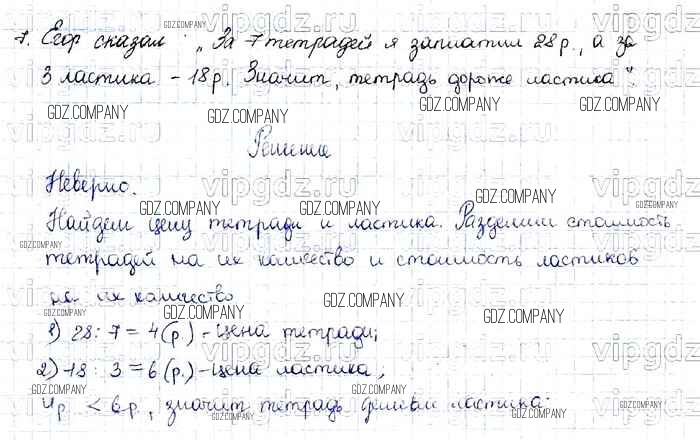 7. Егор сказал: „За 7 тетрадей я заплатил 28 р., а за
3 ластика – 18 р. Значит, тетрадь дороже ластика".
Решение
Неверно.
Найдем цену тетради и ластика. Разделим стоимость
тетрадей на их количество и стоимость ластиков
на их количество
1) 28 : 7 = 4 (р.) – цена тетради;
2) 18 : 3 = 6 (р.) – цена ластика,
4 р. < 6 р., значит тетрадь дешевле ластика.
GDZ.COMPANY
vipgdz.ru